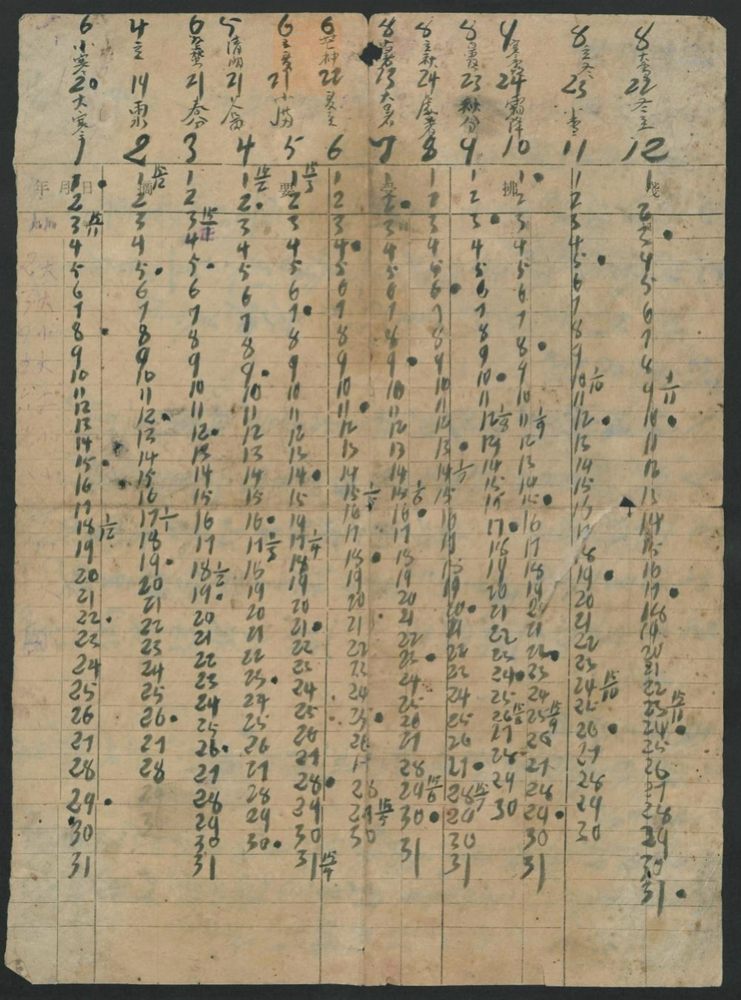 6 小寒 20 大寒 1
4 立 14 雨 2
6 21 春分 3
5 清明 21 4
6 立夏 21 小满 5
6 芒种 22 夏至 6
8 小暑 23 大暑 7
8 立秋 24 處暑 8
8 白露 23 秋分 9
9 寒露 24 霜降 10
8 立冬 23 小雪 11
8 大雪 22 冬至 12
年 月 日 摘 要
1 2 3 15/11 4 5 6 7 8 9 10 11 12 13 14 15 16 17 18 1/12 19 20 21 22 23 24 25 26 27 28 29 30 31
1 15/12 2 3 4 5 6 7 8 9 10 11 12 13 14 15 16 17 1/1 18 19 20 21 22 23 24 25 26 27 28
1 2 3 15/1 4 5 6 7 8 9 10 11 12 13 14 15 16 17 18 1/2 19 20 21 22 23 24 25 26 27 28 29 30 31
1 15/2 2 3 4 5 6 7 8 9 10 11 12 13 14 15 16 17 1/3 18 19 20 21 22 23 24 25 26 27 28 29 30
1 15/3 2 3 4 5 6 7 8 9 10 11 12 13 14 15 16 17 1/4 18 19 20 21 22 23 24 25 26 27 28 29 30 31 15/4
1 2 3 4 5 6 7 8 9 10 11 12 13 14 15 1/5 16 17 18 19 20 21 22 23 24 25 26 27 28 29 15/5 30
1 2 3 4 5 6 7 8 9 10 11 12 13 14 15 1/6 16 17 18 19 20 21 22 23 24 25 26 27 28 29 15/6 30 31
1 2 3 4 5 6 7 8 9 10 11 12 13 14 1/7 15 16 17 18 19 20 21 22 23 24 25 26 27 28 15/7 29 30 31
1 2 3 4 5 6 7 8 9 10 11 12 1/8 13 14 15 16 17 18 19 20 21 22 23 24 25 26 15/8 27 28 29 30
1 2 3 4 5 6 7 8 9 10 11 12 1/9 13 14 15 16 17 18 19 20 21 22 23 24 25 15/9 26 27 28 29 30 31
1 2 3 4 5 6 7 8 9 10 1/10 11 12 13 14 15 16 17 18 19 20 21 22 23 24 15/10 25 26 27 28 29 30
1 2 3 4 5 6 7 8 9 1/11 10 11 12 13 14 15 16 17 18 19 20 21 22 23 15/11 24 25 26 27 28 29 30 31